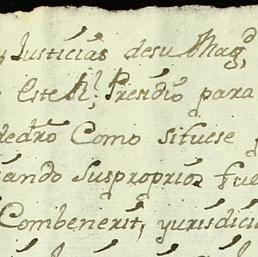 y Justicias desu Mag.d
Este R.l Presidio para
Pedro Como sifuese
ando Susproprios fue
Combenerit, yurisdicia